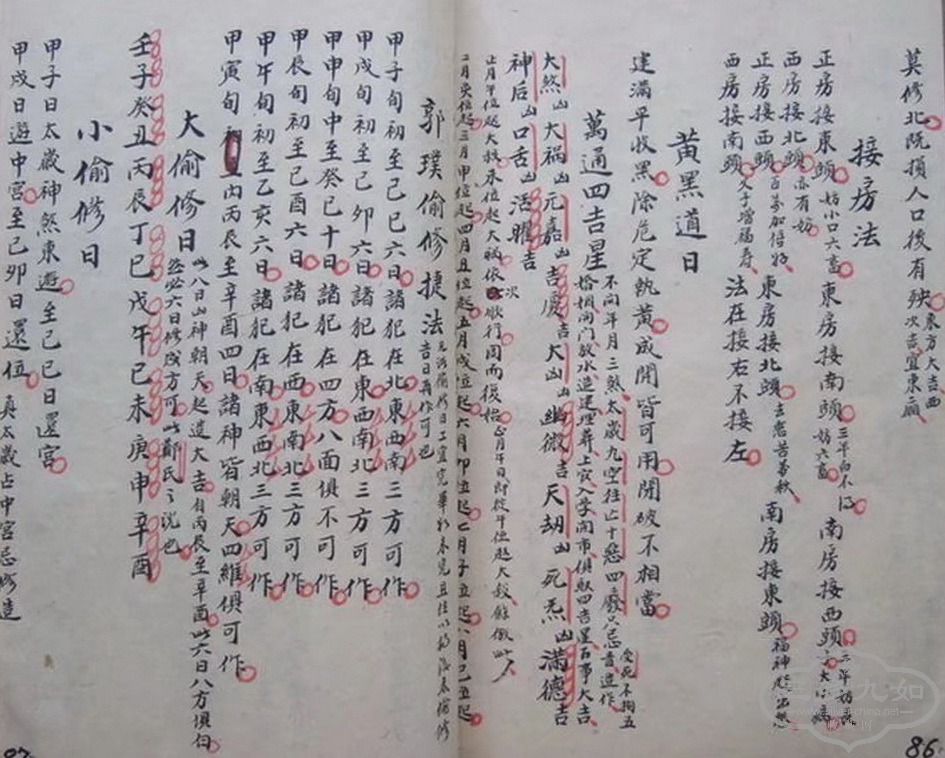 莫修北阮損人口後有殃 東方大吉西
次吉宜東廂
接房法
正房接東頭 妨小口六畜 東房接南頭 三年向不污 南房接西頭 三年妨
西房接北頭 亦有妨
正房接西頭 百萬加倍好 東房接北頭 主愁苦萬秋 南房接東頭 福神
西房接南頭 父子增福寿 法在接右不接左
黃黑道日
建滿平收黑除危定執黃成開皆可用閉破不相當
萬通四吉星 不问年月三煞太歲九空往亡十惡四廢只忌者造作 受死不拘五
婚姻问门放水造建理葬上官入学開市俱取四吉星百事大吉
大煞凶大禍凶元嘉吉吉慶吉大凶凶幽微吉天劫凶死炁凶满德吉
神后凶口舌凶活曜吉
正月午位起大殺末位起大禍依次歇行周而復始 正月午日即從午位起大殺餘倣此
二月亥位起三月申位起四月丑位起五月戌位起六月卯位起七月子位起八月巳位起
郭璞偷修捷法
吉日再作可也
甲子旬初至己巳六日諸犯在北東西南三方可作
甲戌旬初至己卯六日諸犯在東西南北三方可作
甲申旬中至癸巳十日諸犯在四方八面俱不可作
甲辰旬初至己酉六日諸犯在西東南北三方可作
甲午旬初至乙亥六日諸犯在南東西北三方可作
甲寅旬初至内丙辰至辛酉四日諸神皆朝天四維俱可作
大偷修日 此八日山神朝天起造大吉自丙辰至辛酉此六日八方俱白
然必六日修成方可此鄭氏之说也
壬子癸丑丙辰丁巳戊午己未庚申辛酉
小偷修日
甲子日太歲神煞東遊至己巳日還宮
甲戌日遊中宮至己卯日還位 真太歲占中宮忌修造
86